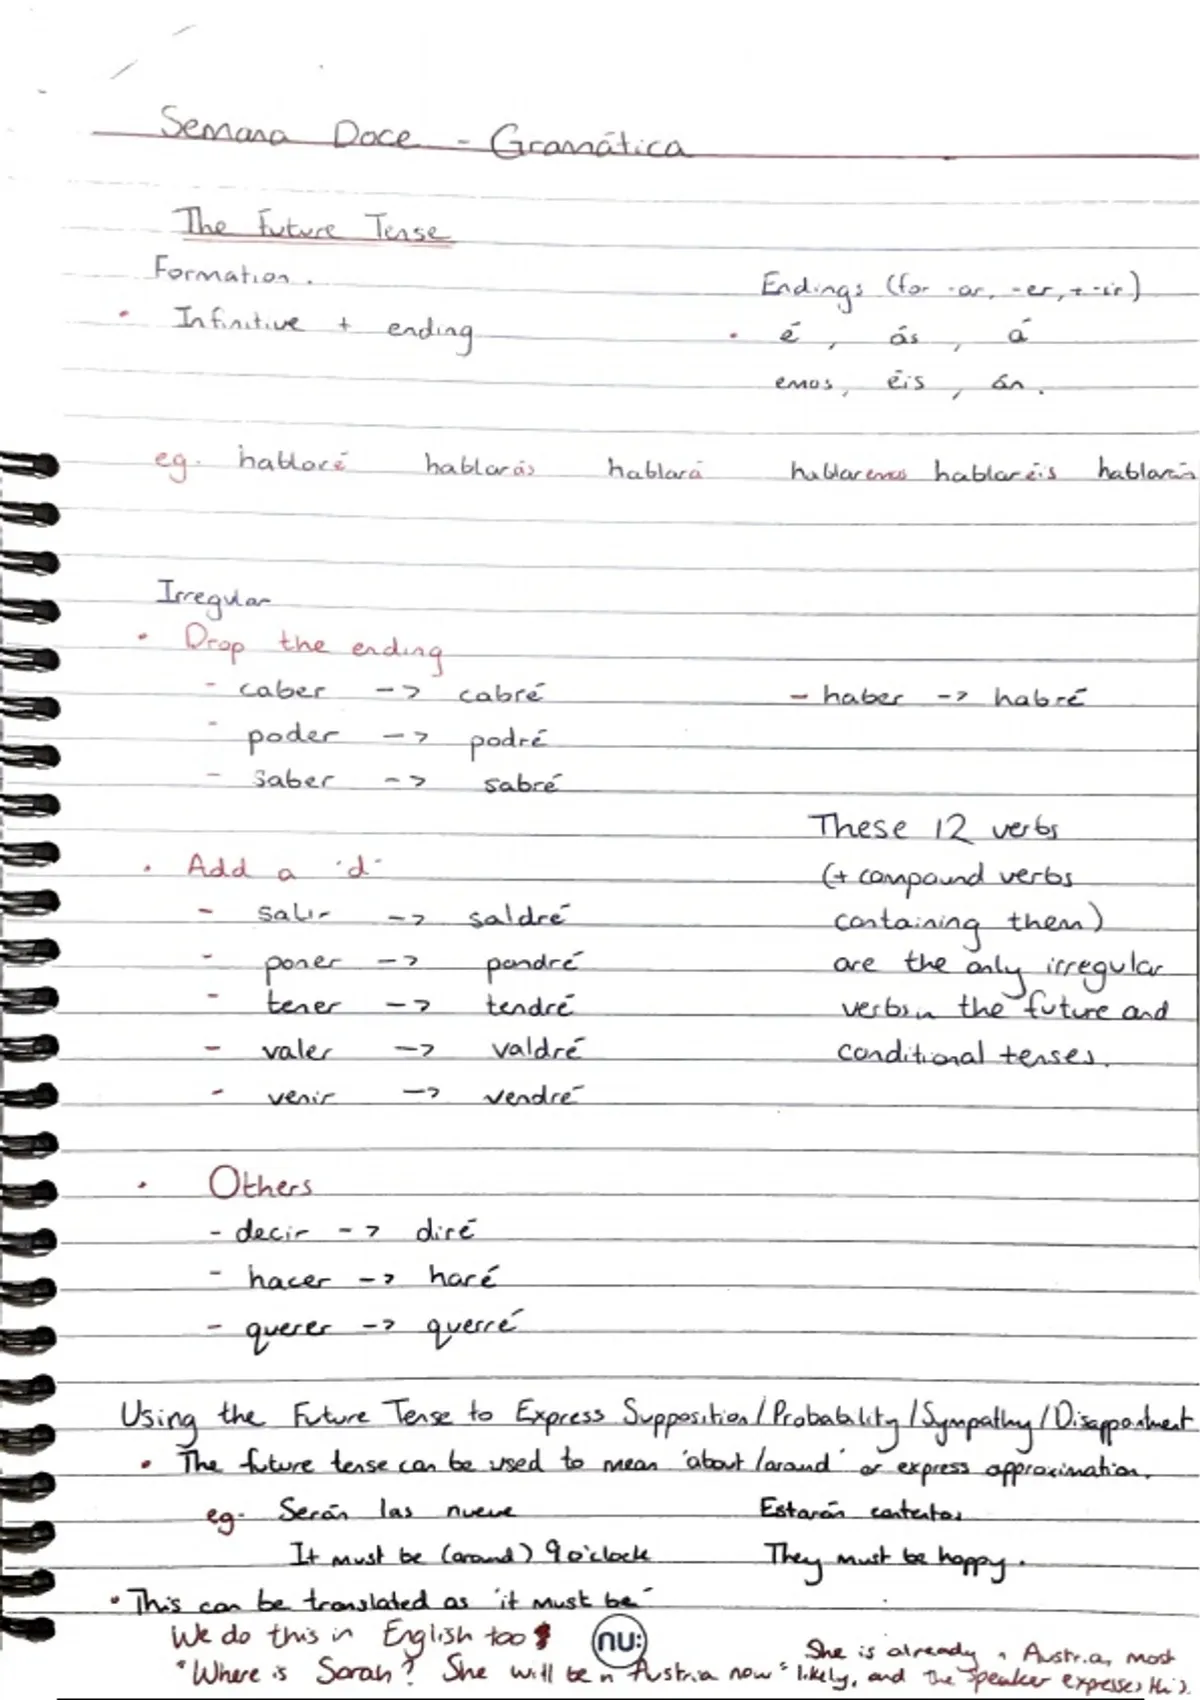 Semana Doce - Gramática
The Future Tense
Formation.
Endings (for -ar, -er, + -ir)
• Infinitive + ending
• é, ás, á
emos, éis, án.
eg. hablaré hablarás hablará hablaremos hablaréis hablarán
Irregular
• Drop the ending
- caber -> cabré
- haber -> habré
- poder -> podré
- saber -> sabré
• Add a 'd'
- salir -> saldré
- poner -> pondré
- tener -> tendré
- valer -> valdré
- venir -> vendré
These 12 verbs
(+ compound verbs
containing them)
are the only irregular
verbs in the future and
conditional tenses.
• Others
- decir -> diré
- hacer -> haré
- querer -> querré
Using the Future Tense to Express Supposition/Probability/Sympathy/Disappointment
• The future tense can be used to mean 'about/around' or express approximation.
eg. Serán las nueve
Estarán contentos.
It must be (around) 9 o'clock
They must be happy.
• This can be translated as 'it must be'
We do this in English too!
nu:
"Where is Sarah? She will be in Austria now"
She is already in Austria, most
likely, and the speaker expresses this.